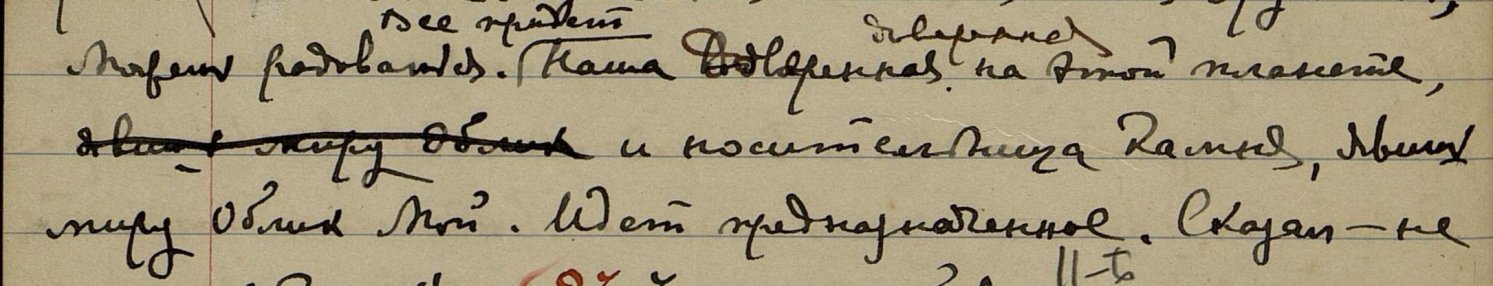 Все придет доверенная
Можем радоваться. Наша Доверенная на этой планете,
явит миру Облик и носительница Камня, явит
миру Облик Мой. Идет предназначенное. Сказал — не
11-ть